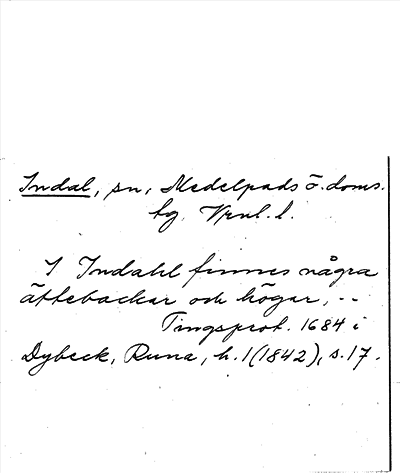 Indal, sn, Medelpads ö. doms.
hg, Vrnl. l.
I Indahl finnes några
ättebackar och högar, --
Tingsprot. 1684 i
Dybeck, Runa, h. 1 (1842), s. 17.